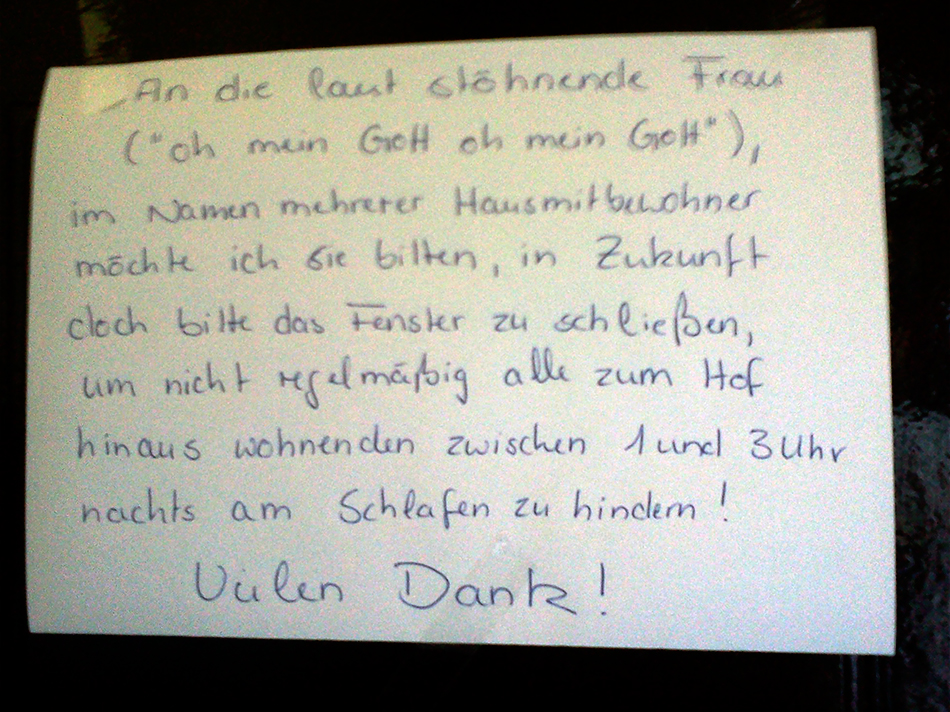 An die laut stöhnende Frau
("oh mein Gott oh mein Gott"),
im Namen mehrerer Hausmitbewohner
möchte ich sie bitten, in Zukunft
doch bitte das Fenster zu schließen,
um nicht regelmäßig alle zum Hof
hinaus wohnenden zwischen 1 und 3 Uhr
nachts am Schlafen zu hindern!
Vielen Dank!